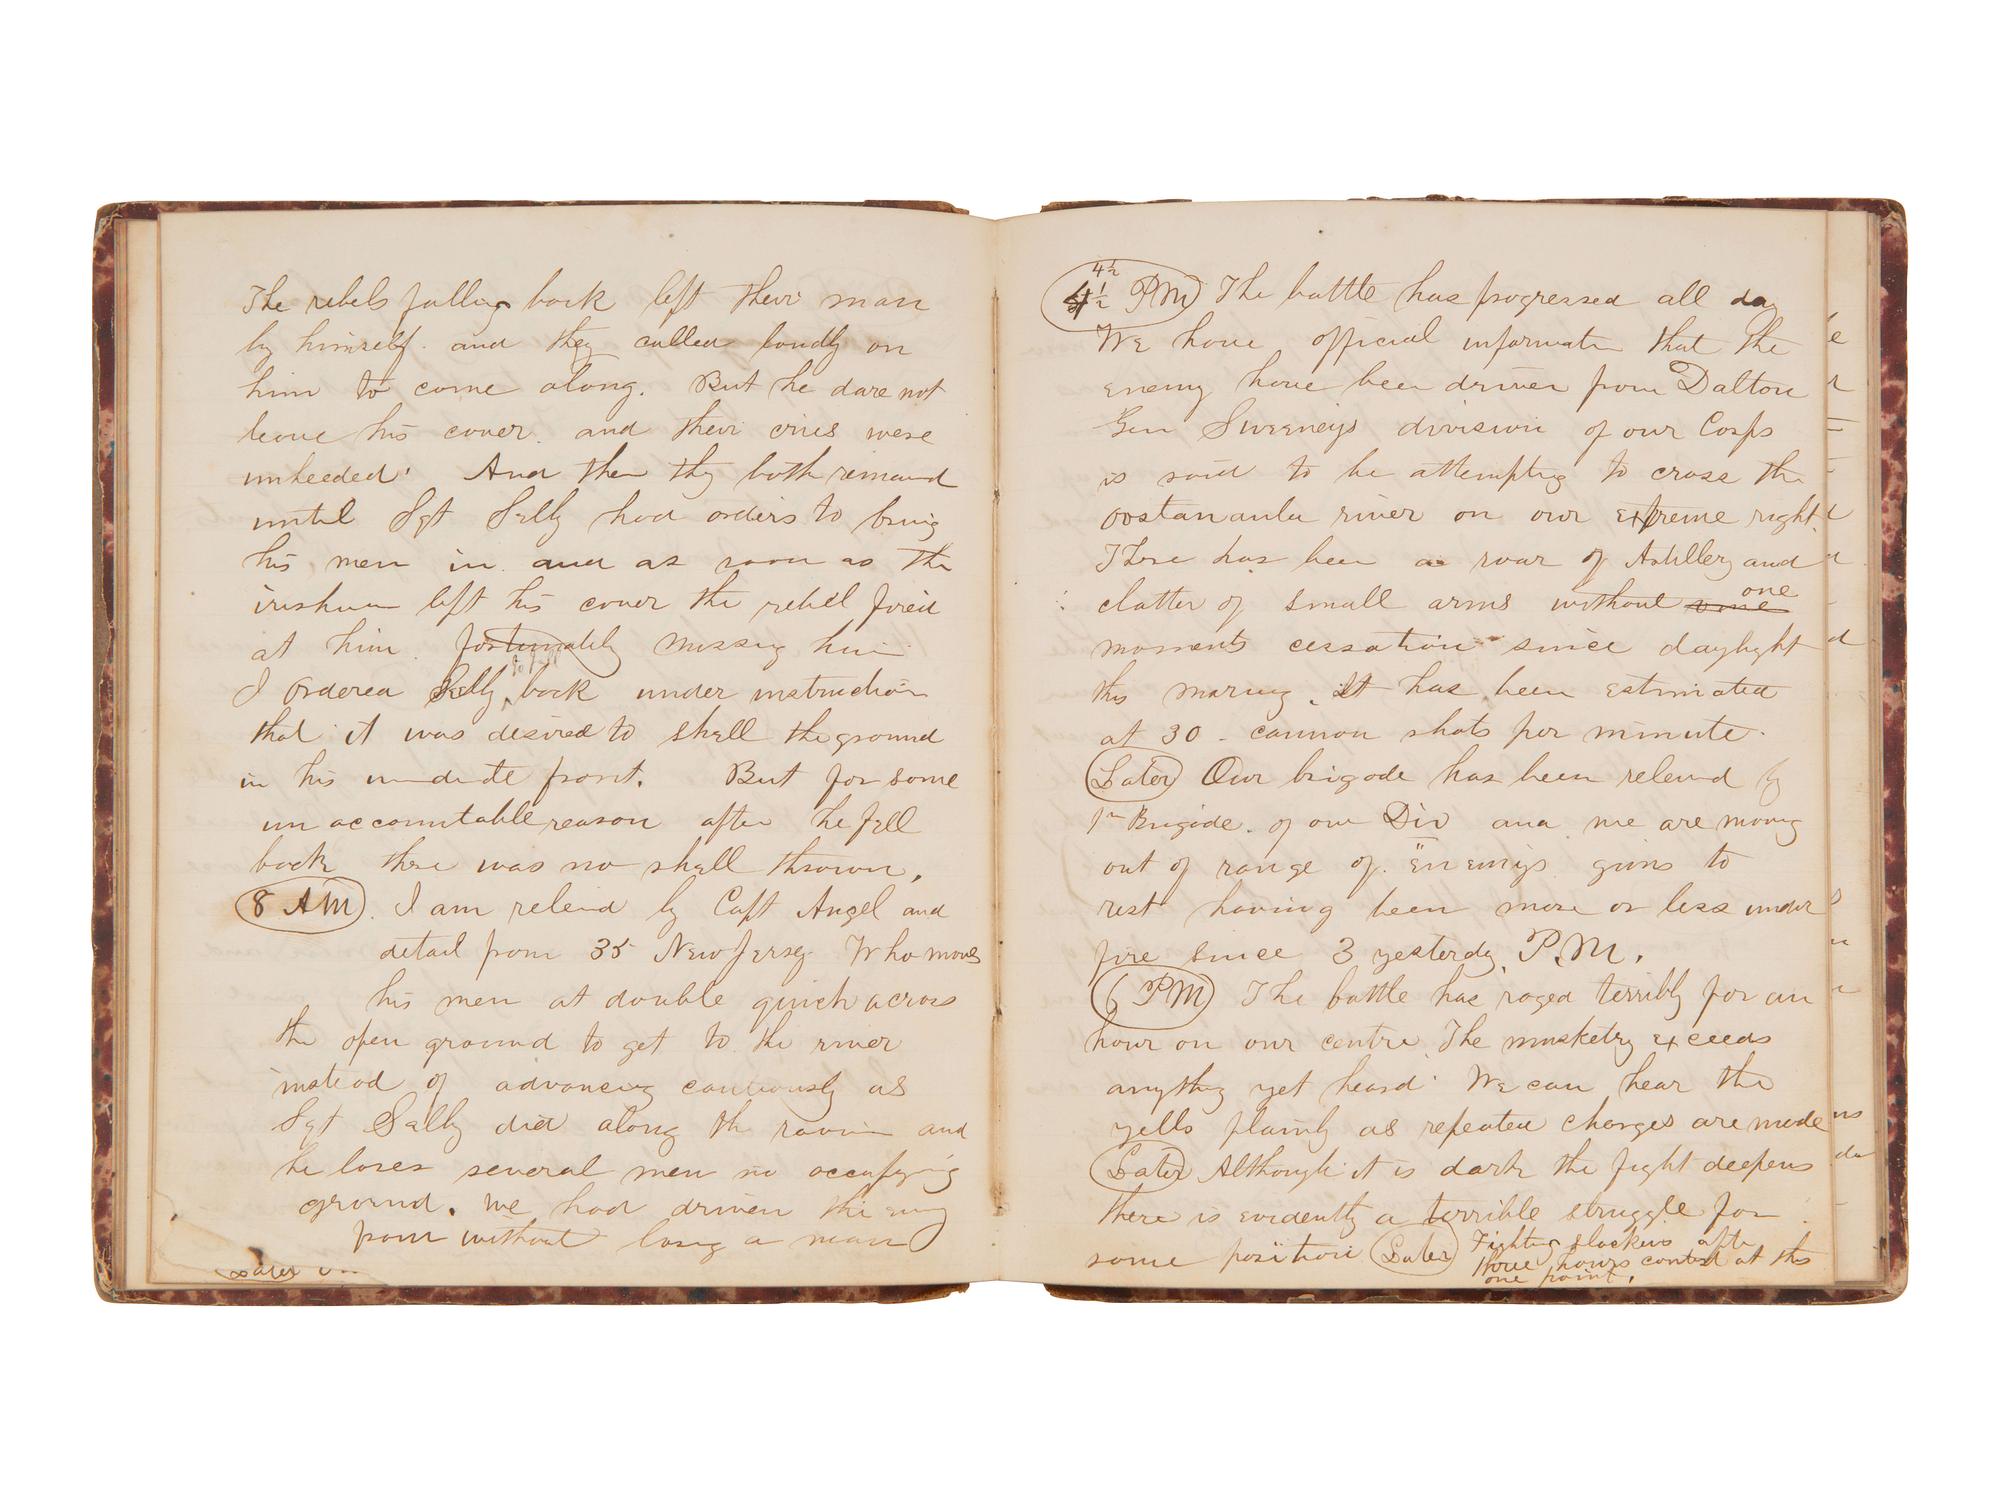 The rebels falling back left their man
by himself. and they called loudly on
him to come along. But he dare not
leave his cover. and their cries were
unheeded. And then they both remaind
until Sgt Selly had orders to bring
his men in. and as soon as the
irishman left his cover the rebel fired
at him. fortunately missing him
I ordered Selly back under instruction
that it was desired to shell the ground
in his immediate front. But for some
unaccountable reason after he fell
back there was no shell thrown.
8 AM. I am relievd by Capt Angel and
detail from 35 New Jersey. Who moves
his men at double quick across
the open ground to get to the river
instead of advancing cautiously as
Sgt Selly did along the ravine and
he loses several men in occupying
ground. we had driven the enemy
from without losing a man
Later
4½
4½ PM The battle has progressed all day
We have official information that the
enemy have been driven from Dalton
Gen Sweeneys division of our Corps
is said to be attempting to cross the
Oostanaula river on our extreme right.
There has been a roar of Artillery and
clatter of small arms without one
moments cessation since daylight
this morning. It has been estimated
at 30 - cannon shots per minute.
Later Our brigade has been relievd by
1st Brigade. of our Div and we are moving
out of range of Enemys guns to
rest having been more or less under
fire since 3 yesterdy P.M.
6 PM The battle has raged terribly for an
hour on our centre. The musketry exceeds
anything yet heard. We can hear the
yells plainly as repeated charges are made
Later Although it is dark the fight deepens
there is evidently a terrible struggle for
some position Later Fighting slackens after
three hours contest at this
one point.